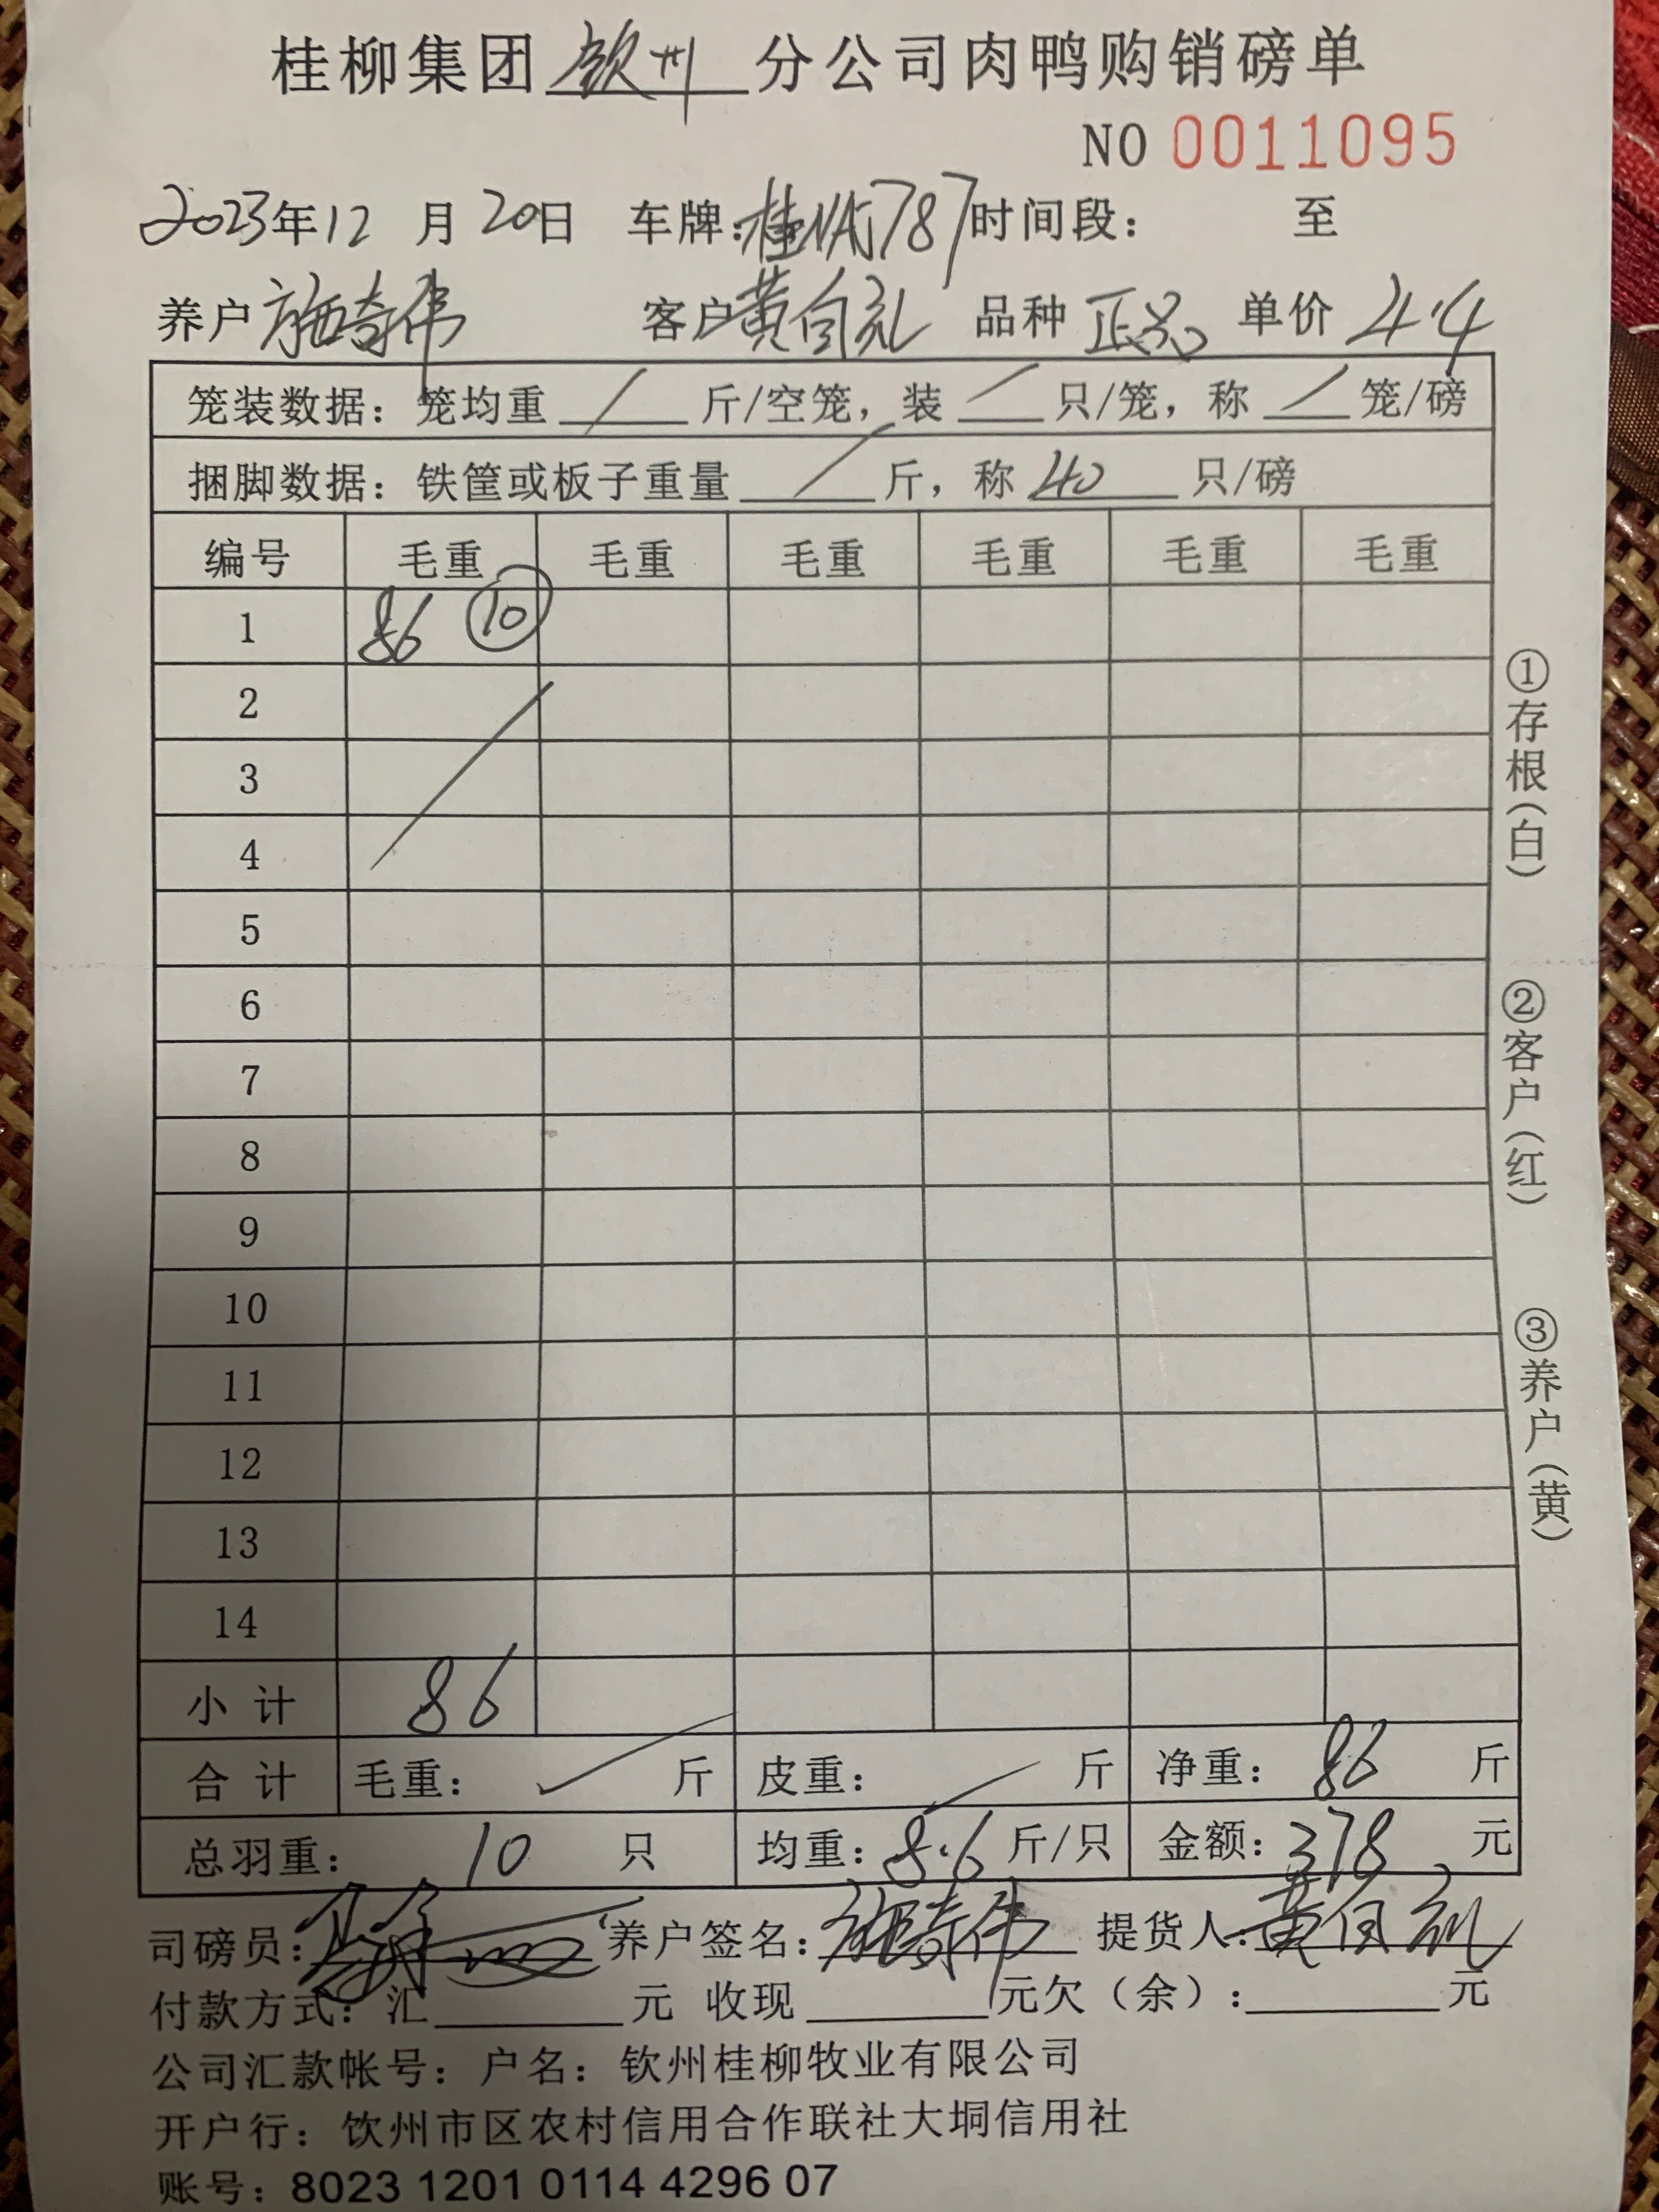 桂柳集团钦州分公司肉鸭购销磅单
NO 0011095
2023年12月20日 车牌:桂NAJ787 时间段: 至
养户 施奇伟 客户 黄自礼 品种 正品 单价 4.4
笼装数据: 笼均重 / 斤/空笼, 装 / 只/笼, 称 / 笼/磅
捆脚数据: 铁筐或板子重量 / 斤, 称 40 只/磅
编号 毛重 毛重 毛重 毛重 毛重 毛重
1 86 ⑩
2
3
4
5
6
7
8
9
10
11
12
13
14
小计 86
合计 毛重: 斤 皮重: 斤 净重: 86 斤
总羽重: 10 只 均重: 8.6 斤/只 金额: 378 元
司磅员: 养户签名: 施奇伟 提货人: 黄自礼
付款方式: 汇 元 收现 元欠(余): 元
公司汇款帐号: 户名: 钦州桂柳牧业有限公司
开户行: 钦州市区农村信用合作联社大垌信用社
账号: 8023 1201 0114 4296 07
①存根(白)
②客户(红)
③养户(黄)